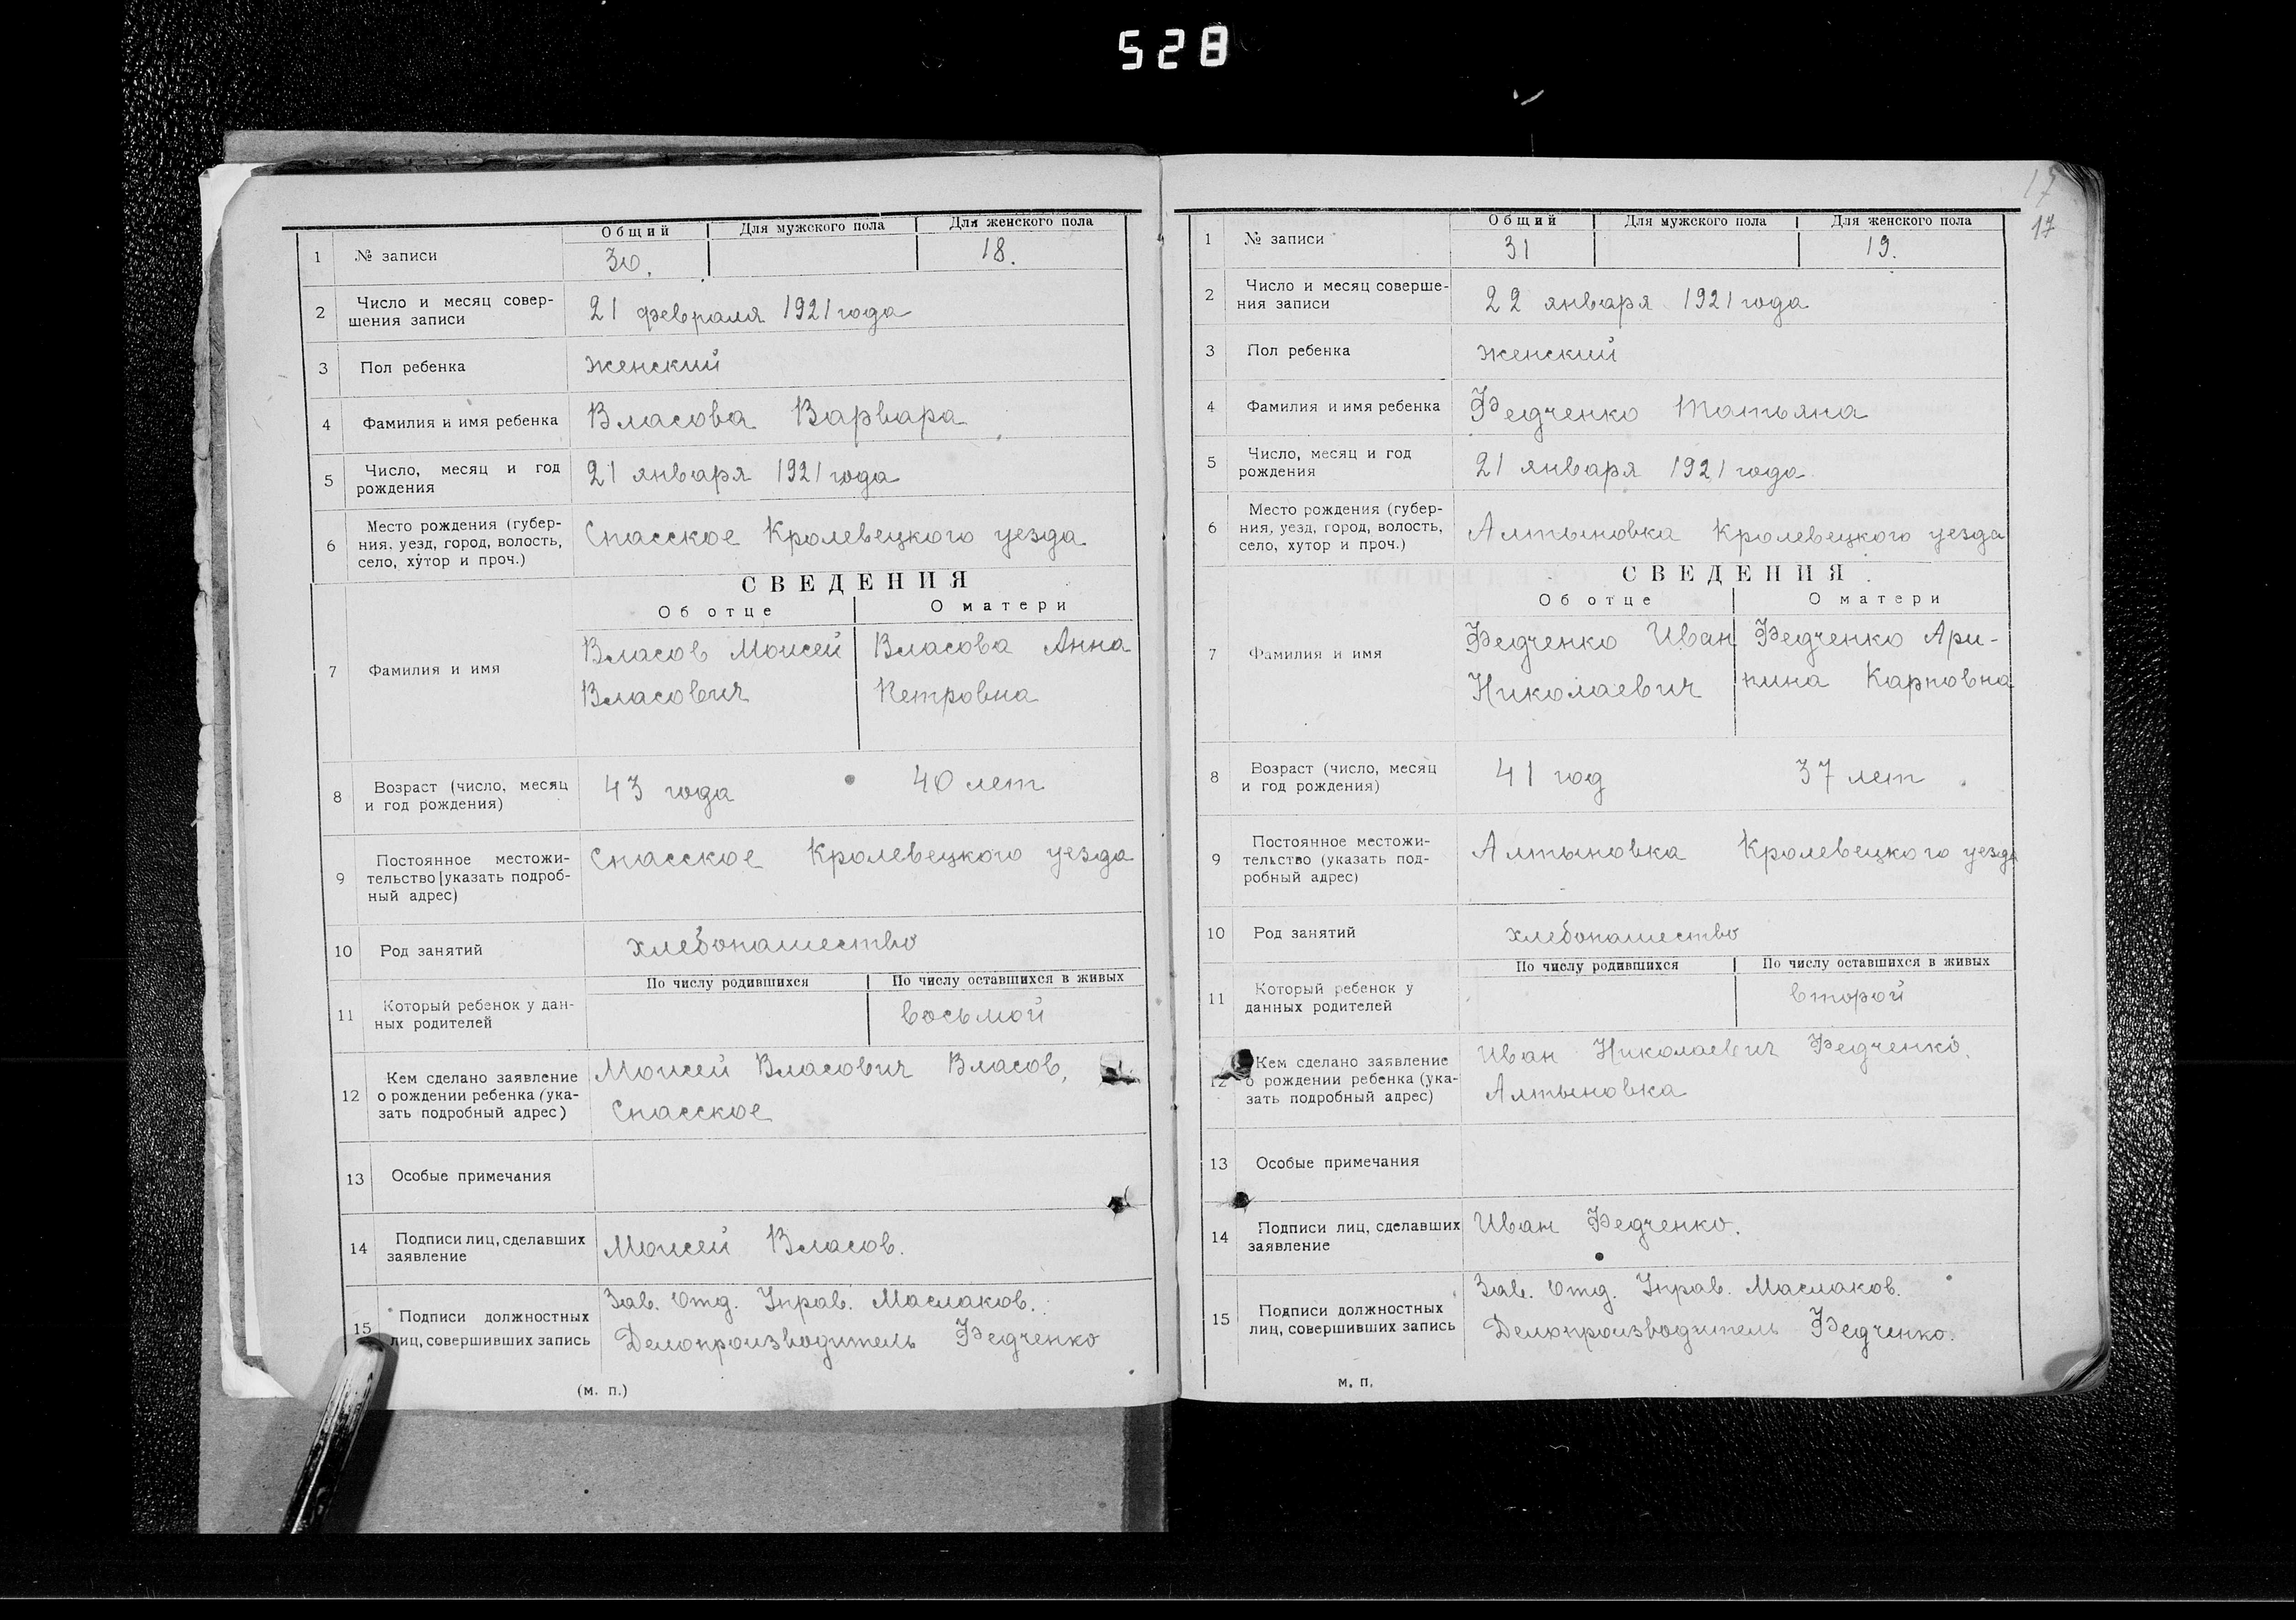 528
Общий Для мужского пола Для женского пола
1 № записи 30. 18.
2 Число и месяц совер-
шения записи 21 февраля 1921 года
3 Пол ребенка женский
4 Фамилия и имя ребенка Власова Варвара
5 Число, месяц и год
рождения 21 января 1921 года
6 Место рождения (губер-
ния, уезд, город, волость,
село, хутор и проч.) Спасское Кролевецкого уезда
СВЕДЕНИЯ
Об отце О матери
7 Фамилия и имя Власов Моисей Власова Анна
Власович Петровна
8 Возраст (число, месяц
и год рождения) 43 года 40 лет
9 Постоянное местожи-
тельство [указать подроб-
ный адрес) Спасское Кролевецкого уезда
10 Род занятий хлебопашество
По числу родившихся По числу оставшихся в живых
11 Который ребенок у дан-
ных родителей восьмой
12 Кем сделано заявление
о рождении ребенка (ука-
зать подробный адрес) Моисей Власович Власов,
Спасское
13 Особые примечания
14 Подписи лиц, сделавших
заявление Моисей Власов.
15 Подписи должностных
лиц, совершивших запись Зав. Отд. Управ. Маслаков.
Делопроизводитель Федченко
(м. п.)
17
17
Общий Для мужского пола Для женского пола
1 № записи 31 19.
2 Число и месяц соверше-
ния записи 22 января 1921 года
3 Пол ребенка женский
4 Фамилия и имя ребенка Федченко Татьяна
5 Число, месяц и год
рождения 21 января 1921 года
6 Место рождения (губер-
ния, уезд, город, волость,
село, хутор и проч.) Алтыновка Кролевецкого уезда
СВЕДЕНИЯ
Об отце О матери
7 Фамилия и имя Федченко Иван Федченко Ари-
Николаевич пина Карповна
8 Возраст (число, месяц
и год рождения) 41 год 37 лет
9 Постоянное местожи-
тельство (указать под-
робный адрес) Алтыновка Кролевецкого уезда
10 Род занятий хлебопашество
По числу родившихся По числу оставшихся в живых
11 Который ребенок у
данных родителей второй
12 Кем сделано заявление
о рождении ребенка (ука-
зать подробный адрес) Иван Николаевич Федченко.
Алтыновка
13 Особые примечания
14 Подписи лиц, сделавших
заявление Иван Федченко.
15 Подписи должностных
лиц, совершивших запись Зав. Отд. Управ. Маслаков.
Делопроизводитель Федченко.
м. п.